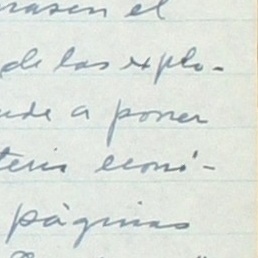 nasen el
de las explo-
de a poner
teris econó-
páginas